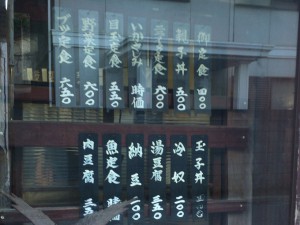 御定食 四〇〇
親子丼 五〇〇
定食 六〇〇
いかさし 時価
目玉定食 五五〇
野菜定食 六〇〇
ブツ定食 六五〇
玉子丼
冷奴 二〇〇
湯豆腐 三五〇
納豆 二〇〇
魚定食 時価
肉豆腐 三五